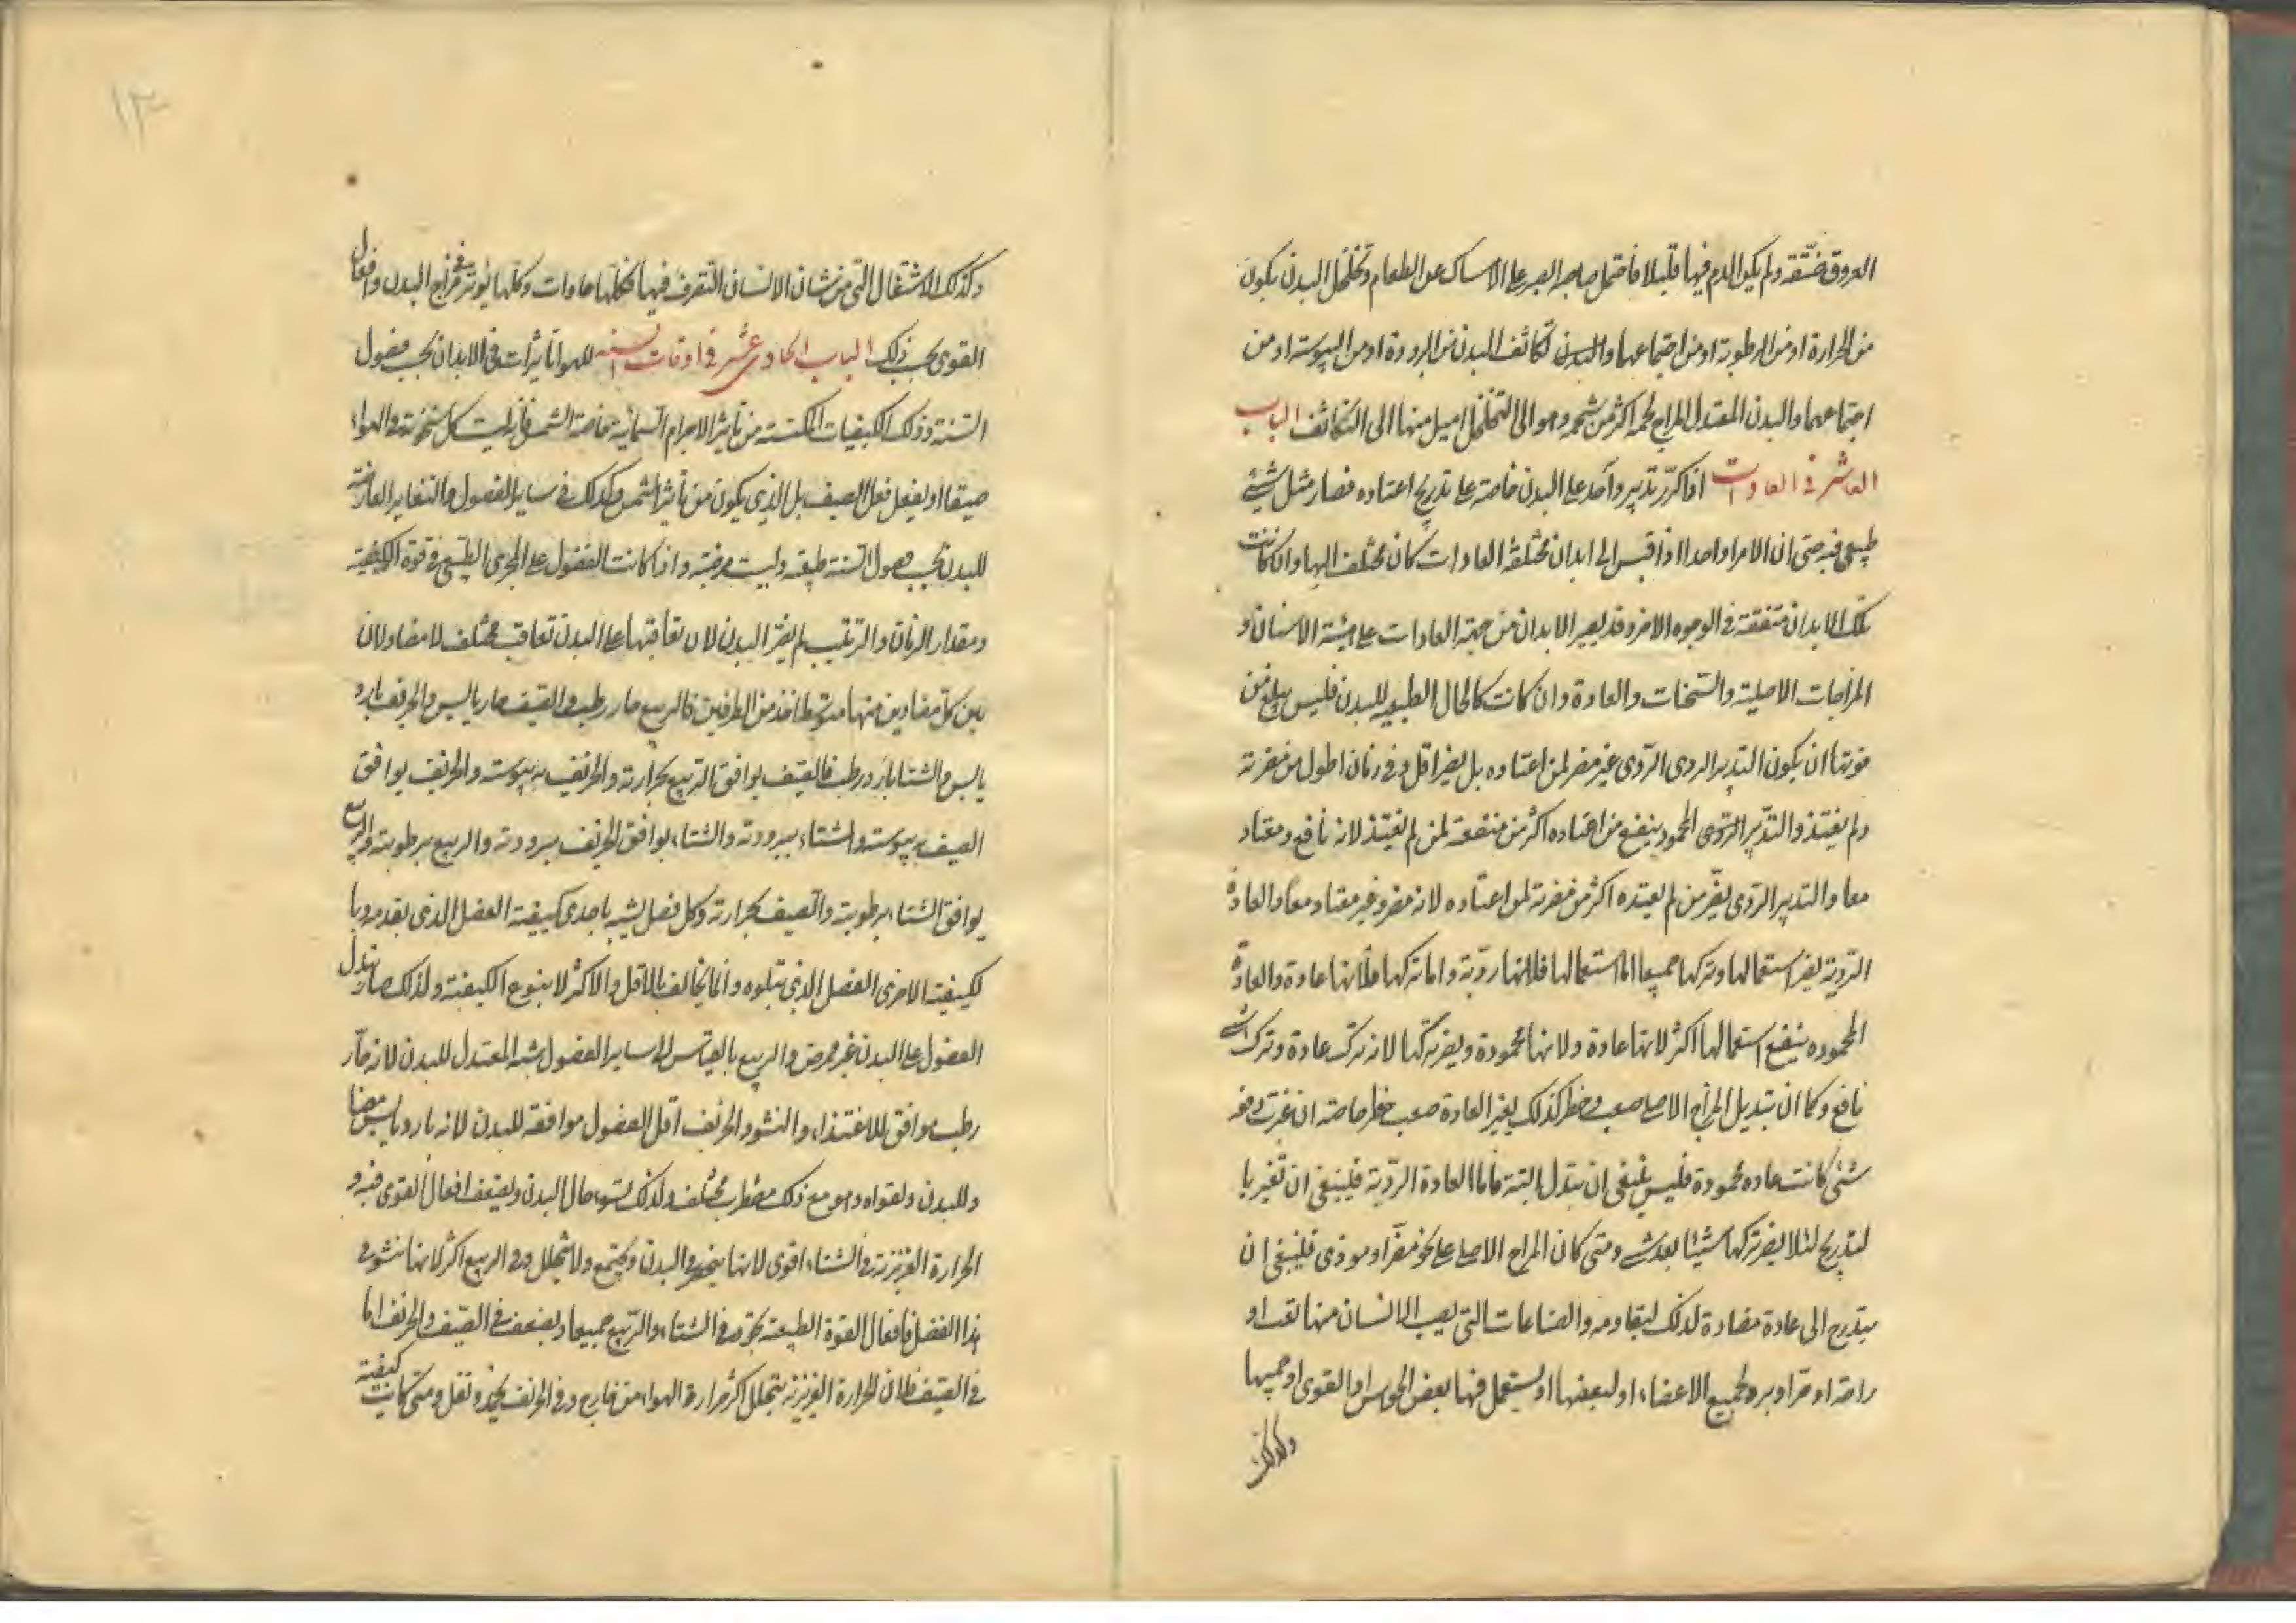 العروق ضيّقة ولم يكن الدم فيها قليلا فاحتمل صاحبه الصبر على الامساك عن الطعام وتخلخل البدن يكون
من الحرارة او من الرطوبة او من اجتماعهما والبدن تكاثف البدن من البرودة او من اليبوسة او من
اجتماعهما والبدن المعتدل المزاج لحمه اكثر من شحمه وهو الى التخلخل اميل منها الى التكاثف الباب
العاشر في العادات اذا كرّر تدبير واحد على البدن خاصة على تدريج اعتاده فصار مثل شيئ
طبيعي فيه حتى ان الامر واحدا اذا قيس الى ابدان مختلفة العادات كان مختلف اليها وان كانت
تلك الابدان متفقة في الوجوه الاخر وقد يصير الابدان من جهة العادات على هيئة الاسنان و
المزاجات الاصلية والسخنات والعادة وان كانت كالحال الطبيعيه للبدن فليس يبلغ من
قوتها ان يكون التدبير الردى الرّدى غير مضر لمن اعتاده بل يضر اقل وفي زمان اطول من مضرته
ولم يغتذ والتدّبير الرّدى المحمود ينفع من اعتاده اكثر من منفعة لمن لم يغتذ لانه نافع ومعتاد
معا والتدبير الرّدى يضرّ من لم يعتده اكثر من مضرته لمن اعتاده لانه مضر وغير معتاد معا والعادة
الرّدية يضر استعمالها وتركها جميعا اما استعمالها فلانها رديّة واما تركها فلانها عادة والعادة
المحموده ينفع استعمالها اكثر لانها عادة ولانها محمودة ويضر تركها لانه ترك عادة وترك شى
نافع وكما ان تبديل المزاج الاصلى صعب وخطر كذلك يغير العادة صعب خطر خاصة ان غيرت دفعة
متى كانت عاده محمودة فليس ينبغى ان تبدل البتة فاما العادة الرّدية فينبغى ان تغير با
لتدريج لئلا يضر تركها شيئا بعد شى ومتى كان المزاج الاصلى على نحو مضرّ او موذى فينبغى ان
يتدرج الى عادة مضادة لذلك ليقاومه والصناعات التى يصيب الانسان منها تعب او
راحة او حر او برد لجميع الاعضاء او لبعضها او يستعمل فيها بعض الحواس او القوى او جميعها
وكذلك
١٣
وكذلك الاشتغال التى من شان الانسان التصرف فيها فكلها عادات وكلها يؤثر في مزاج البدن وافعال
القوى بحسب ذلك الباب الحادى عشر في اوقات السنه للهوا تاثيرات في الابدان بحسب فصول
السّنة وذلك الكيفيات المكتسبة من تاثير الاجرام السّمائية خاصة الشمس فانه ليست كل سخونة في الهواء
صيفا او يفعل فعل الصيف بل الذى يكون من تأثير الشمس وكذلك في ساير الفصول والتغاير العارضة
للبدن بحسب فصول السنة طبيعة وليست مرضية واذا كانت الفصول على المجرى الطبيعى في قوة الكيفية
ومقدار الزمان والترتيب لم يضر البدن لان تعاقبها على البدن تعاقب مختلف لا مضاد لان
بين كل متضادين منها متوسطا خذ من الطرفين فالربيع حار رطب والصيف حار يابس والخريف بارد
يابس والشتا بارد رطب فالصيف يوافق الربيع بحرارته والخريف بيبوسته والخريف يوافق
الصيف بيبوسته والشتاء ببرودته والشتاء يوافق الخريف ببرودته والربيع برطوبته والربيع
يوافق الشتاء برطوبته والصيف بحرارته وكل فصل يشبه باحدى كيفيته الفصل الذى يقدمه وبا
لكيفيته الاخرى الفصل الذى يتلوه وانما يخالف بالاقل والاكثر لا بنوع الكيفية ولذلك صار تبدل
الفصول على البدن غير ممرض والربيع بالقياس الى ساير الفصول شبه المعتدل للبدن لانه حارّ
رطب موافق للاغتذاء والنشو والخريف اقل الفصول موافقة للبدن لانه بارد يابس مضا
د للبدن ولقواه وهو مع ذلك مضطرب مختلف ولذلك يسوء حال البدن ويضعف افعال القوى فيه و
الحرارة الغريزية في الشتاء اقوى لانها ينحصر في البدن ويجتمع ولا يتحلل وفي الربيع اكثر لانها تنشو في
هذا الفصل فافعال القوة الطبيعية تجود في الشتاء والرّبيع جميعا ويضعف في الصيف والخريف اما
في الصيف فلان الحرارة الغريزية يتحلل اكثر حرارة الهواء من خارج وفي الخريف يخمد وتقل ومتى كانت كيفية